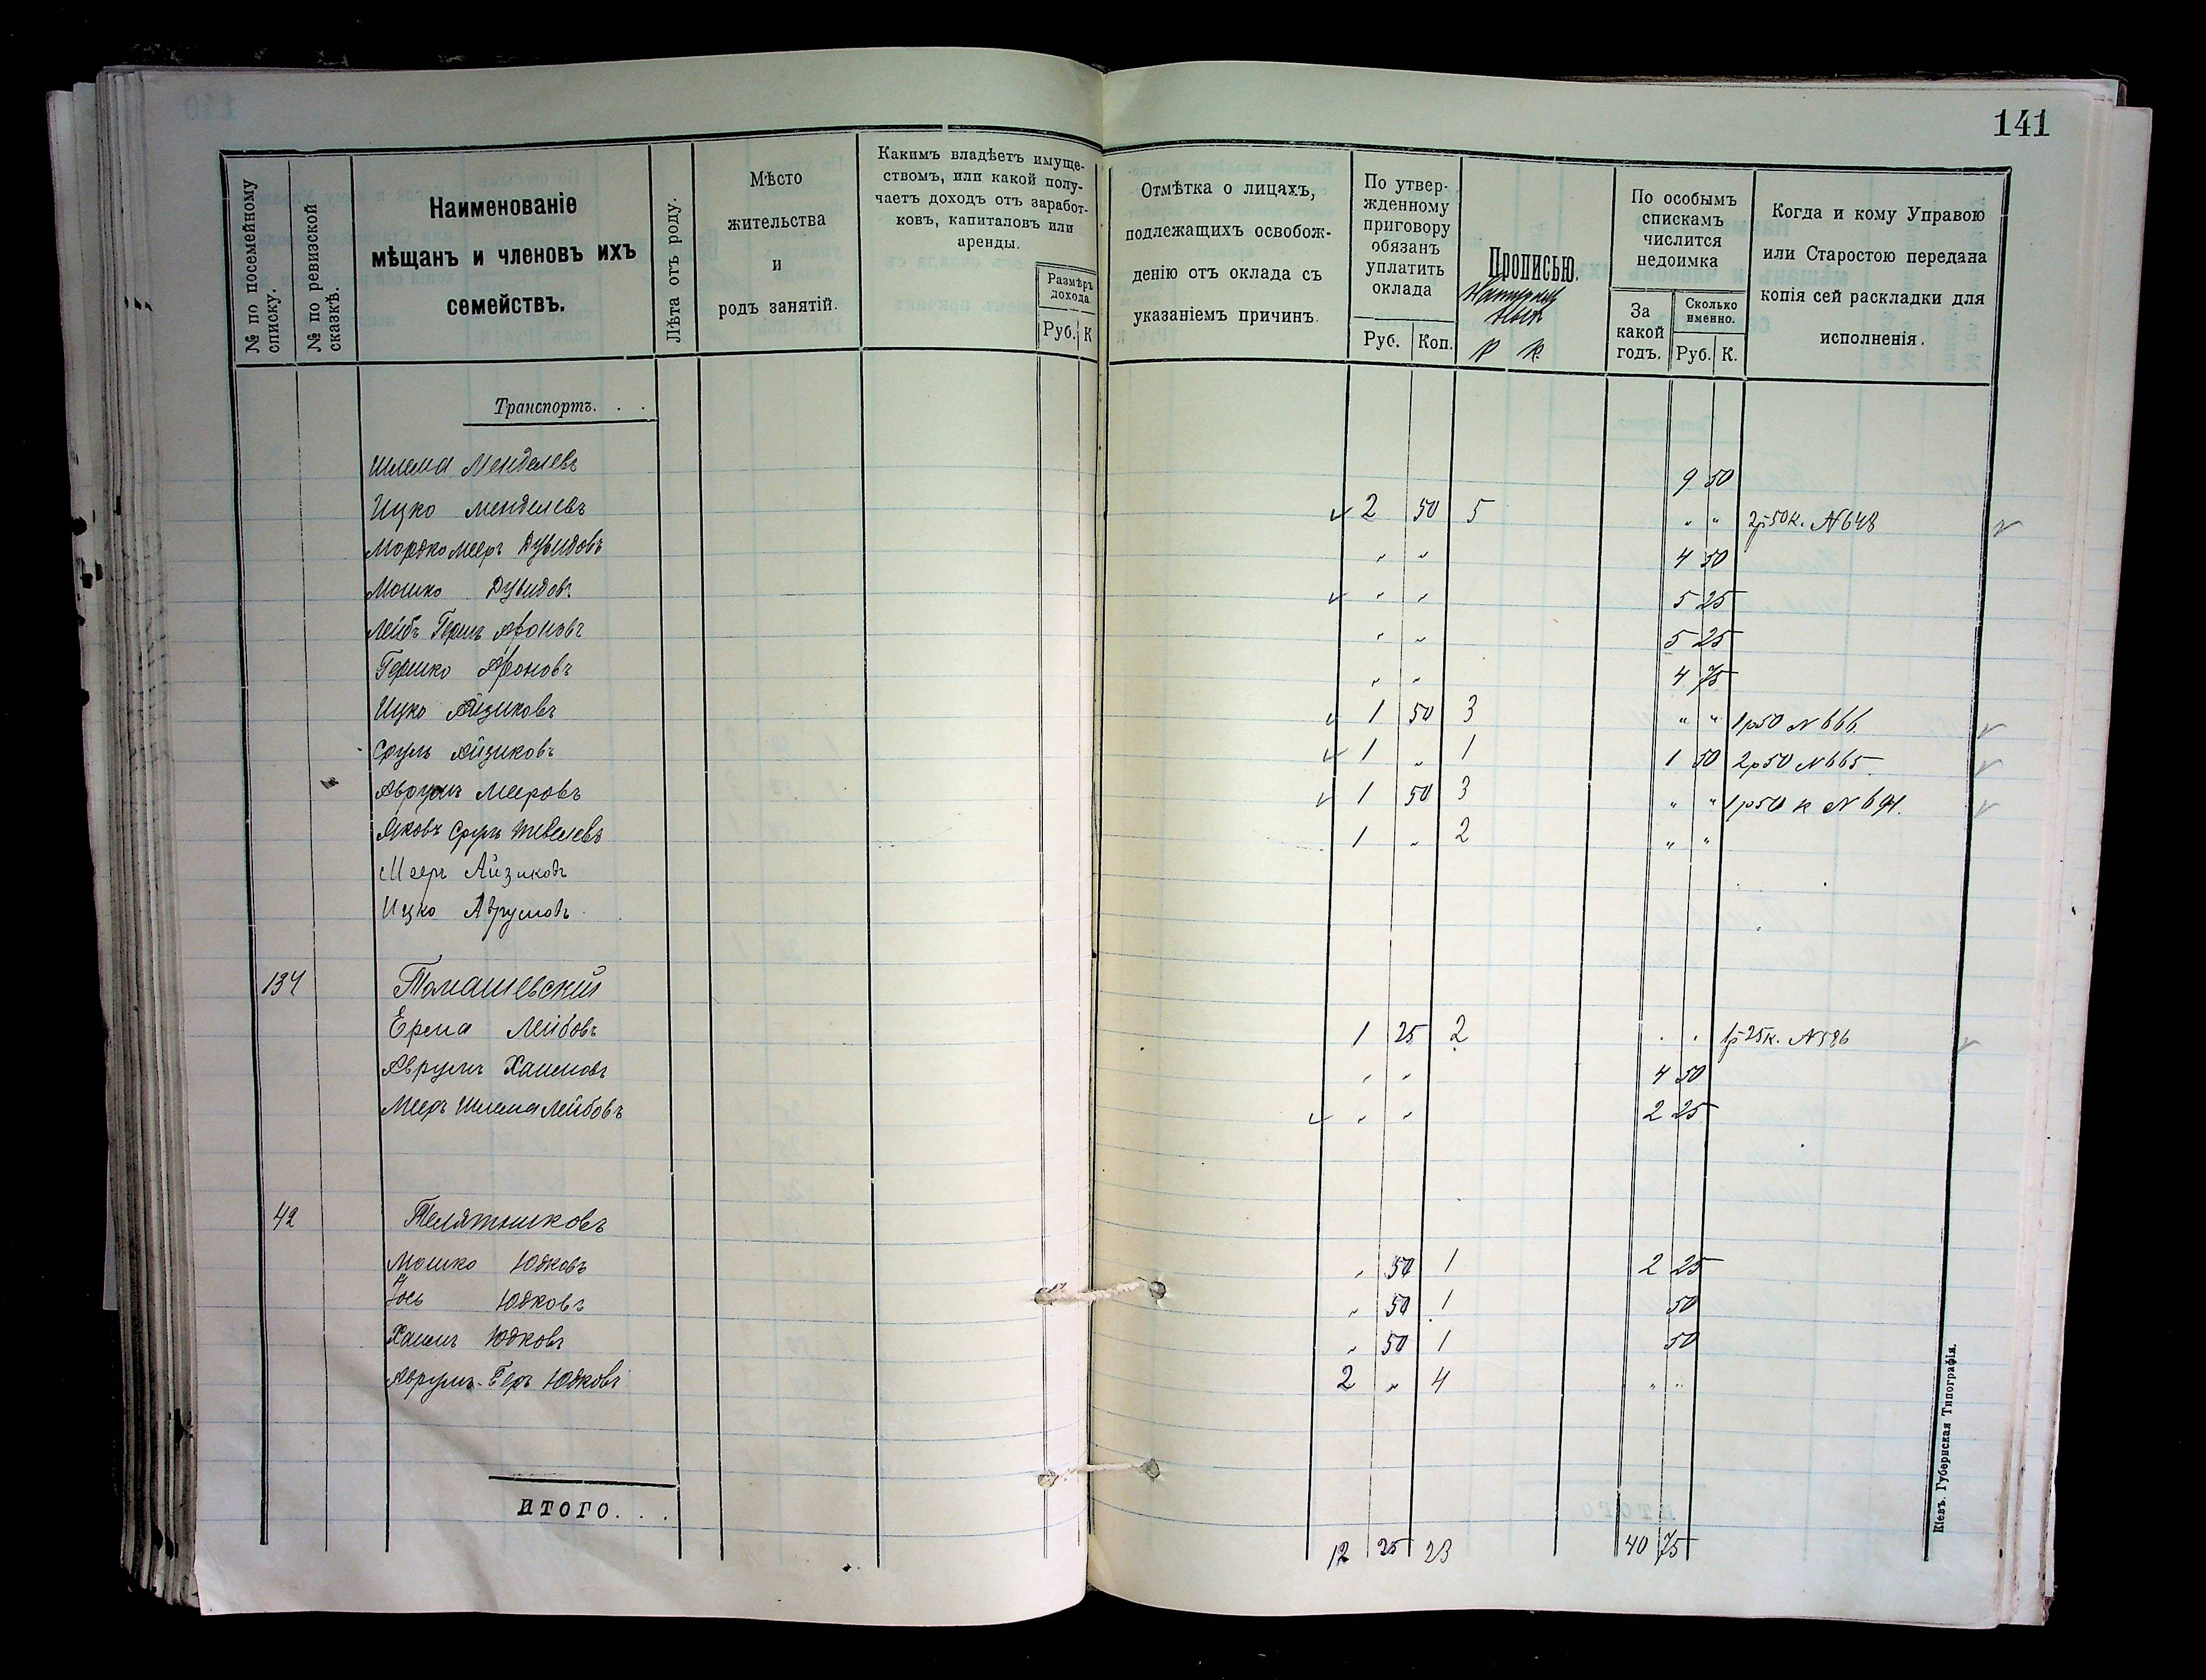 141
№ по посемейному списку.
№ по ревизской сказкѣ.
Наименованіе мѣщанъ и членовъ ихъ семействъ.
Лѣта отъ роду.
Мѣсто жительства и родъ занятій.
Какимъ владѣетъ имуще-
ствомъ, или какой полу-
чаетъ доходъ отъ заработ-
ковъ, капиталовъ или
аренды.
Размѣръ дохода.
Руб. К
Отмѣтка о лицахъ,
подлежащихъ освобож-
денію отъ оклада съ
указаніемъ причинъ.
По утвер-
жденному
приговору
обязанъ
уплатить
оклада
Руб. Коп.
Прописью.
Р К
По особымъ
спискамъ
числится
недоимка
За какой годъ.
Сколько именно.
Руб. К.
Когда и кому Управою
или Старостою передана
копія сей раскладки для
исполненія.
Транспортъ. . .
Шлема Менделевъ 9 50
Ицко Менделевъ 2 50 5 " " 2р 50к. N 648
Мордко Меер Дувидовъ " " 4 50
Мошко Дувидов. " " 5 25
Лейбъ Герш Ароновъ " " 5 25
Гершко Ароновъ " " 4 75
Ицко Айзиковъ 1 50 3 " " 1р50 N 666.
Сруль Айзиковъ 1 " 1 1 50 2р50 N 665.
Аврумъ Меировъ 1 50 3 " " 1р50 к N 691.
Яковъ Сруль Тевелевъ 1 " 2 " "
Меер Айзиковъ
Ицко Аврумовъ
134 Томашевский
Ерма Лейбовъ 1 25 2 . . 1р 25к. N 586
Аврумъ Хаимовъ " " 4 50
Меер Шлема Лейбовъ " " 2 25
42 Телятниковъ
Мошко Юдковъ " 50 1 2 25
Іось Юдковъ " 50 1 50
Хаимъ Юдковъ " 50 1 50
Аврумъ-Бер Юдковъ 2 " 4 " "
ИТОГО. . .
12 25 23 40 75
Кіевъ. Губернская Типографія.